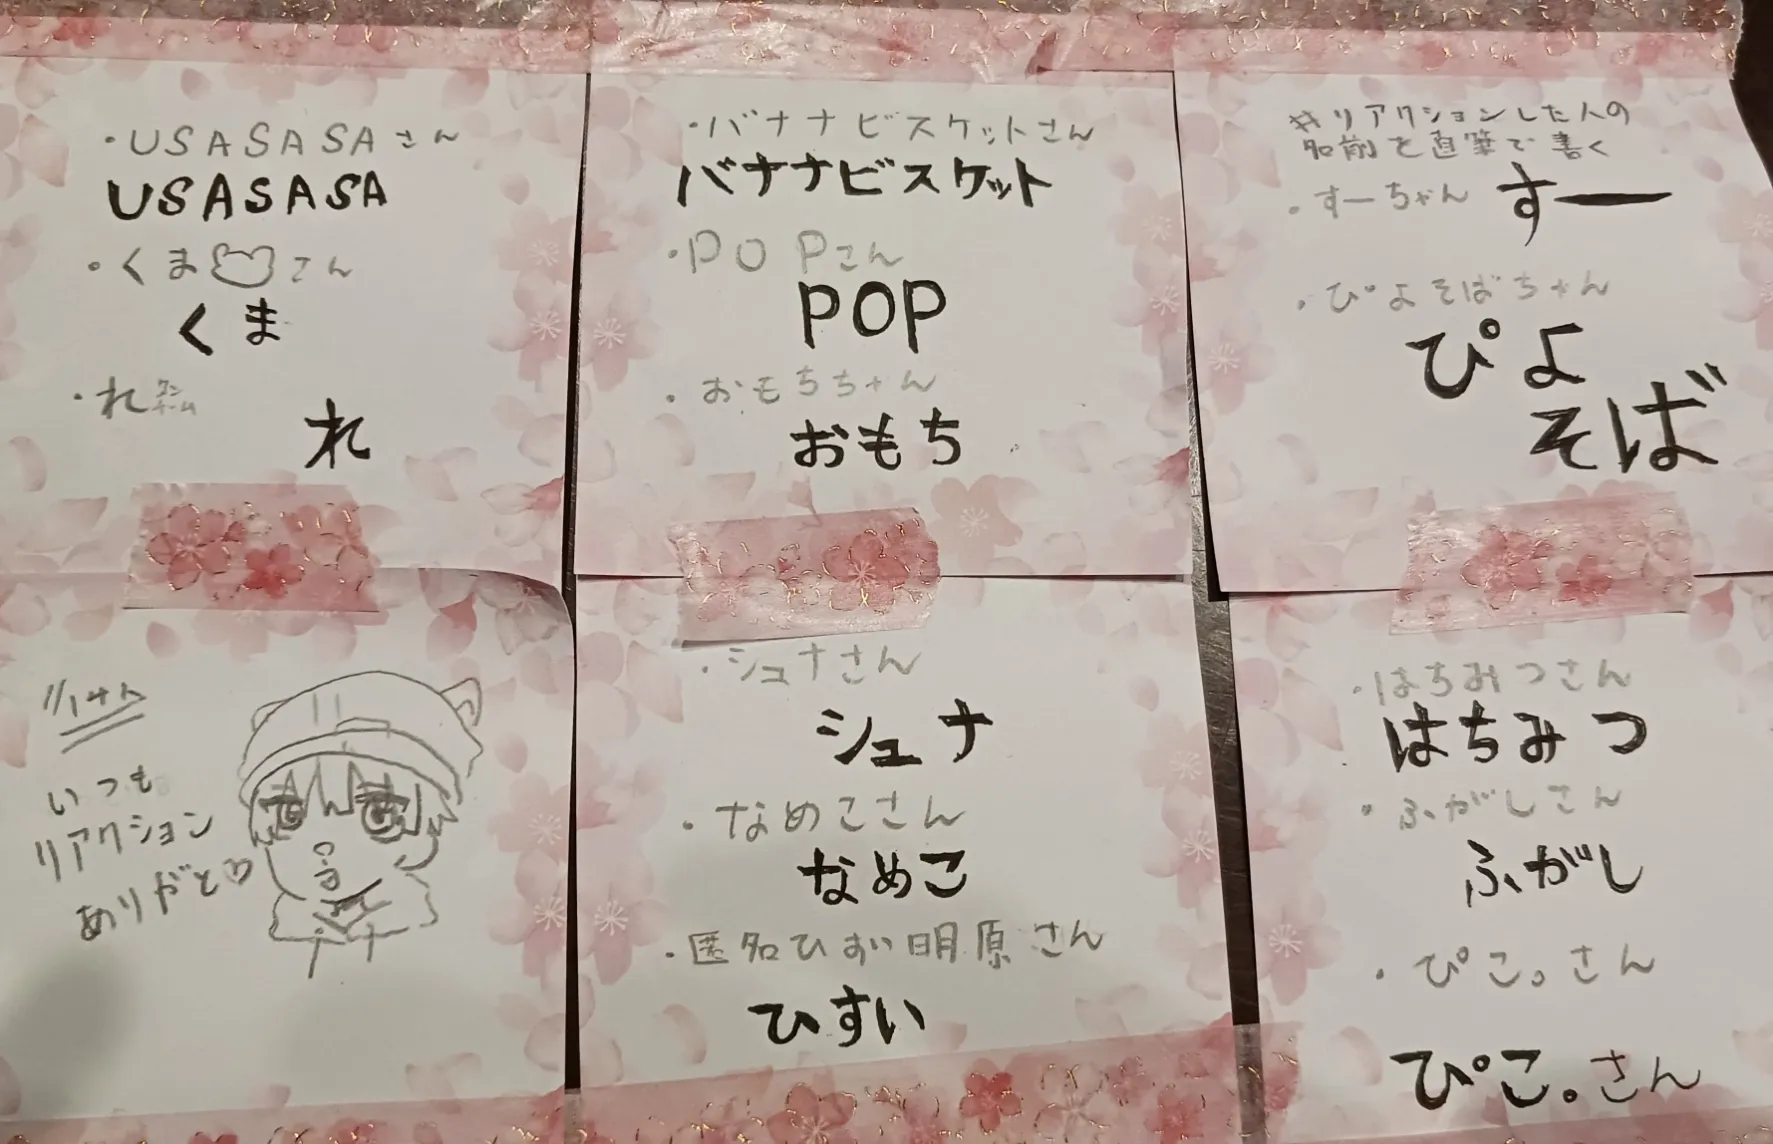 ・USASASAさん
USASASA
・くまさん
くま
・れ
れ
・バナナビスケットさん
バナナビスケット
・POPさん
POP
・おもちちゃん
おもち
#リアクションした人の
名前を直筆で書く
・すーちゃん
すー
・ぴよそばちゃん
ぴよ
そば
いつも
リアクション
ありがと♡
・シュナさん
シュナ
・なめこさん
なめこ
・匿名ひすい明原さん
ひすい
・はちみつさん
はちみつ
・ふがしさん
ふがし
・ぴこ。さん
ぴこ。さん